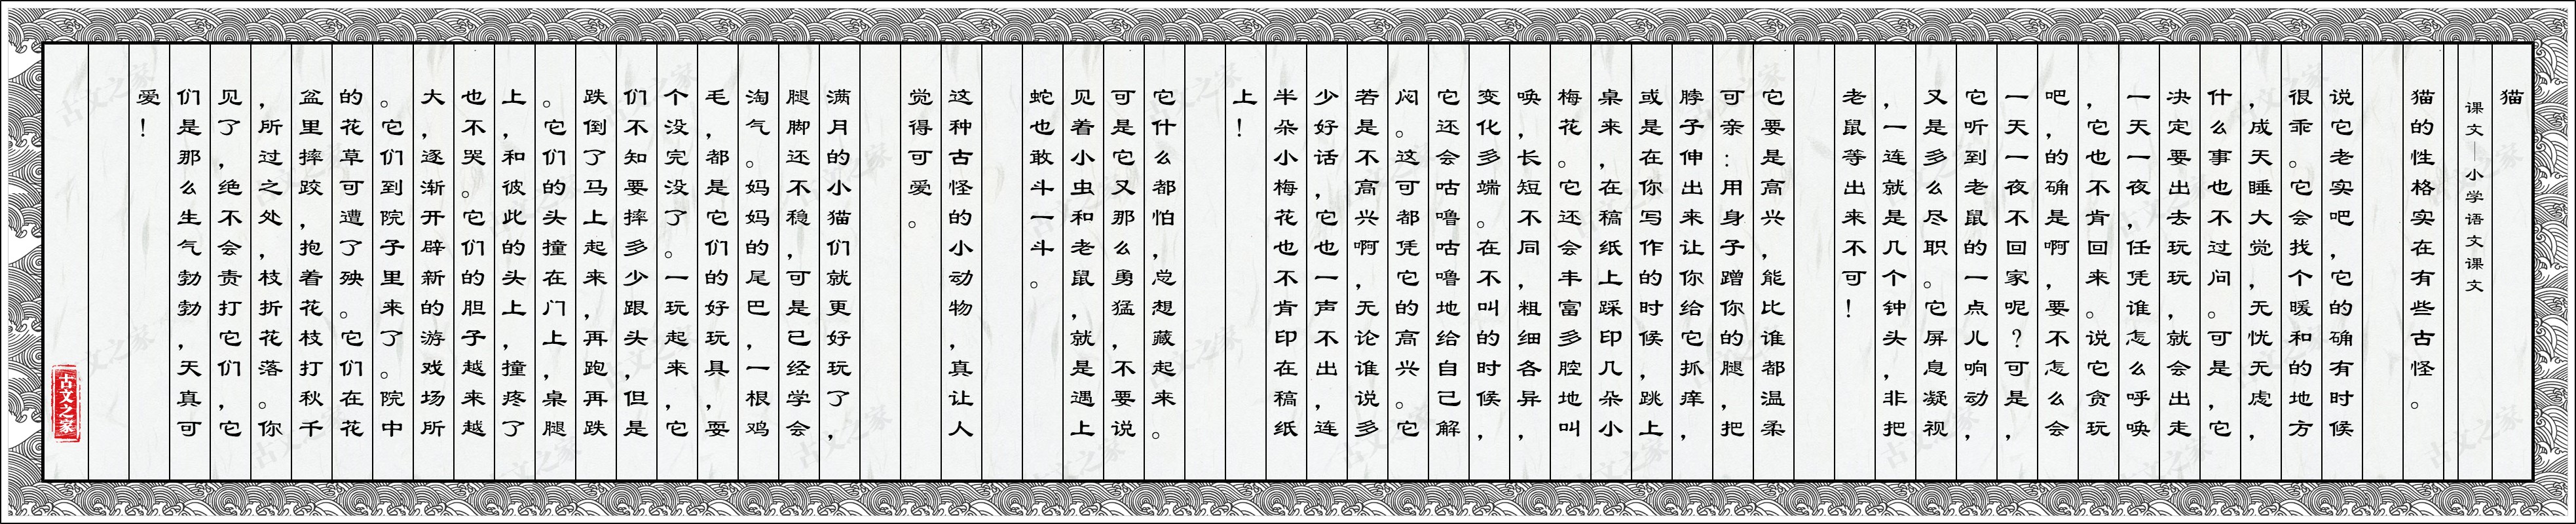 猫
课文—小学语文课文
猫的性格实在有些古怪。
说它老实吧，它的确有时候
很乖。它会找个暖和的地方
，成天睡大觉，无忧无虑，
什么事也不过问。可是，它
决定要出去玩玩，就会出走
一天一夜，任凭谁怎么呼唤
，它也不肯回来。说它贪玩
吧，的确是啊，要不怎么会
一天一夜不回家呢？可是，
它听到老鼠的一点儿响动，
又是多么尽职。它屏息凝视
，一连就是几个钟头，非把
老鼠等出来不可！
它要是高兴，能比谁都温柔
可亲：用身子蹭你的腿，把
脖子伸出来让你给它抓痒，
或是在你写作的时候，跳上
桌来，在稿纸上踩印几朵小
梅花。它还会丰富多腔地叫
唤，长短不同，粗细各异，
变化多端。在不叫的时候，
它还会咕噜咕噜地给自己解
闷。这可都凭它的高兴。它
若是不高兴啊，无论谁说多
少好话，它也一声不出，连
半朵小梅花也不肯印在稿纸
上！
它什么都怕，总想藏起来。
可是它又那么勇猛，不要说
见着小虫和老鼠，就是遇上
蛇也敢斗一斗。
这种古怪的小动物，真让人
觉得可爱。
满月的小猫们就更好玩了，
腿脚还不稳，可是已经学会
淘气。妈妈的尾巴，一根鸡
毛，都是它们的好玩具，耍
个没完没了。一玩起来，它
们不知要摔多少跟头，但是
跌倒了马上起来，再跑再跌
。它们的头撞在门上，桌腿
上，和彼此的头上，撞疼了
也不哭。它们的胆子越来越
大，逐渐开辟新的游戏场所
。它们到院子里来了。院中
的花草可遭了殃。它们在花
盆里摔跤，抱着花枝打秋千
，所过之处，枝折花落。你
见了，绝不会责打它们，它
们是那么生气勃勃，天真可
爱！
古文之家